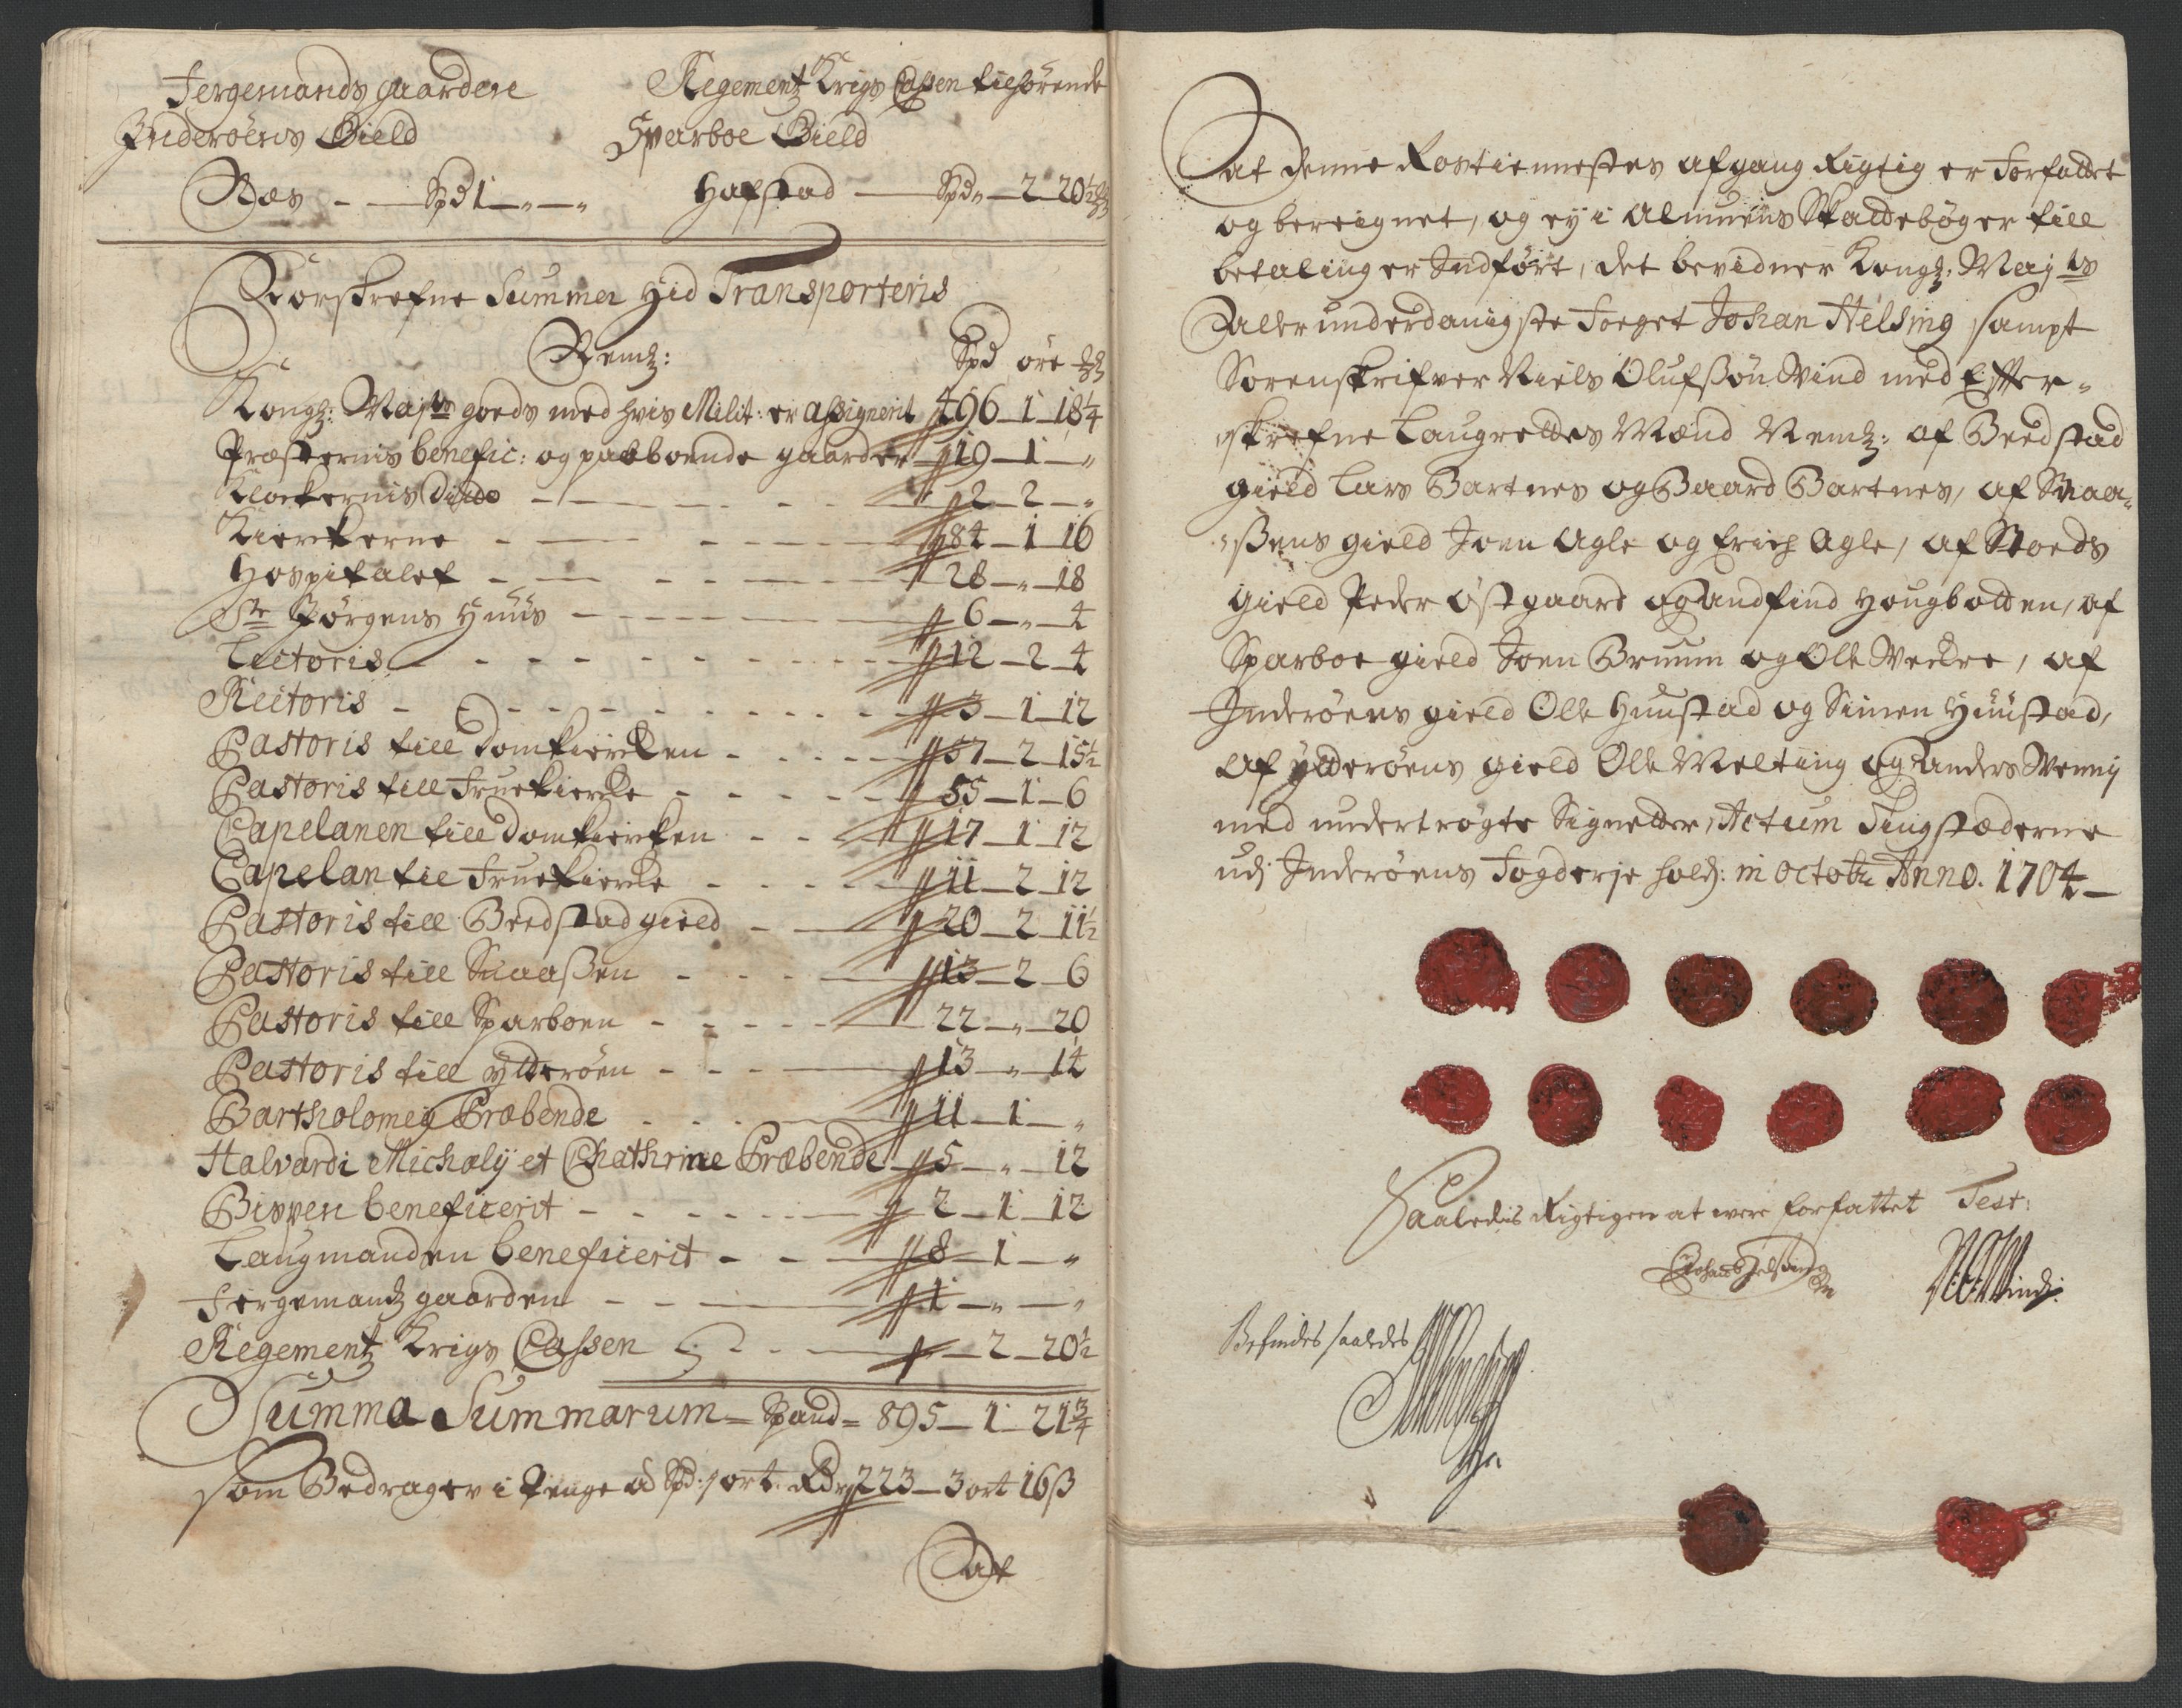 Fergemands gaarden
Inderøens Gield
Næs - - Spd 1 - " - "
Regementz Krigs Cassen tilhørende
Sparboe Gield
Hafstad - Spd " - 2 - 20½
Forskrefne Summer hid Transporteris
Nemlig:
Spd øre
Kongl: Mayts goeds med hvis Milit: er assignerit 496 - 1 - 18¼
Præsternis benefic: og paaboende gaarder 19 - 1 - "
Klockernis Dito 2 - 2 - "
Kierkerne 84 - 1 - 16
Hospitalet 28 - " - 18
St Jørgens Huus 6 - " - 4
Lectoris 12 - 2 - 4
Rectoris 3 - 1 - 12
Pastoris till Domkiercken 57 - 2 - 15½
Pastoris till Fruekiercke 55 - 1 - 6
Capelanen till Domkierken 17 - 1 - 12
Capelan til Fruekierke 11 - 2 - 12
Pastoris till Beedstad gield 20 - 2 - 11½
Pastoris till Snaaßen 13 - 2 - 6
Pastoris till Sparboen 22 - " - 20
Pastoris till ytterøen 13 - " - 14
Bartholomey Præbende 11 - 1 - "
Halvardi Michaly et Chathrine Præbende 5 - " - 12
Bispen beneficerit 2 - 1 - 12
Laugmanden beneficerit 8 - 1 - "
Fergemandz gaarden 1 - " - "
Regementz Krigs Cassen 2 - 20½
Summa Summarum - Spand - 895 - 1 - 21¾
som Bedrager i Penge à Spd: 1 ort Rdr 223 - 3 ort 16 ß
At
At denne Rostiennestes afgang Rigtig er Forfattet
og beregnet, og ey i Almuens Skattebøger till
betaling er Indført, det bevidner Kongl: Mayts
Allerunderdanigste Foeget Johan Helsing sampt
Sorenskrifver Niels Olufßøn Wind med Effter-
skrefne Laugrettes Mænd Nemlig: af Beedstad
gield Lars Bartnes og Baard Bartnes, af Snaa-
ßens gield Joen Agle og Erich Agle, af Stoeds
gield Peder Østgaard og Andfind Hougbotten, af
Sparboe gield Joen Bruum og Olle Weckre, af
Inderøens gield Olle Huustad og Simen Huustad,
af ytterøens gield Olle Melting og Anders Wennij
med undertrøgte Signetter, Actum Tingstæderne
udj Inderøens Fogderje hold: in Octobr Anno. 1704
Saaledis Rigtigen at were forfattet Test:
Johan Helsing
NOWind
Befindes saaledes